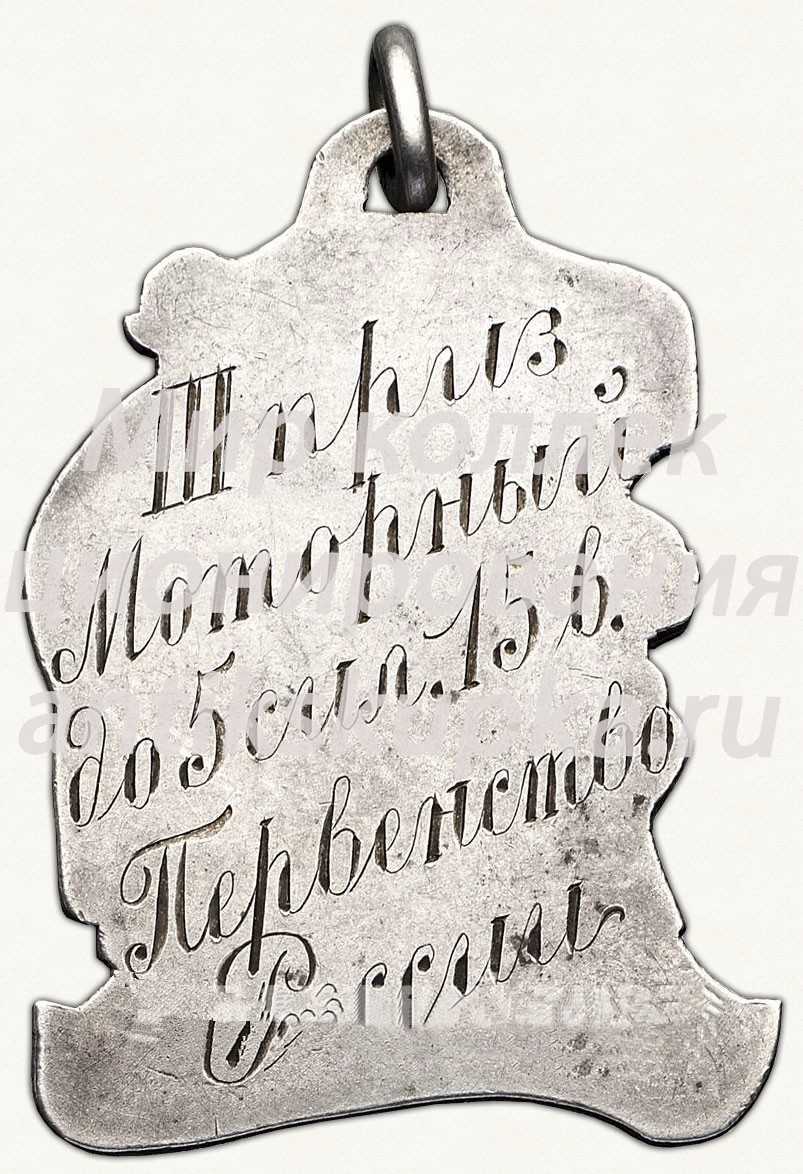 III призъ,
Моторный
до 5 сил. 15 в.
Первенство
России
Мир коллек
ционирования
antikskupka.ru